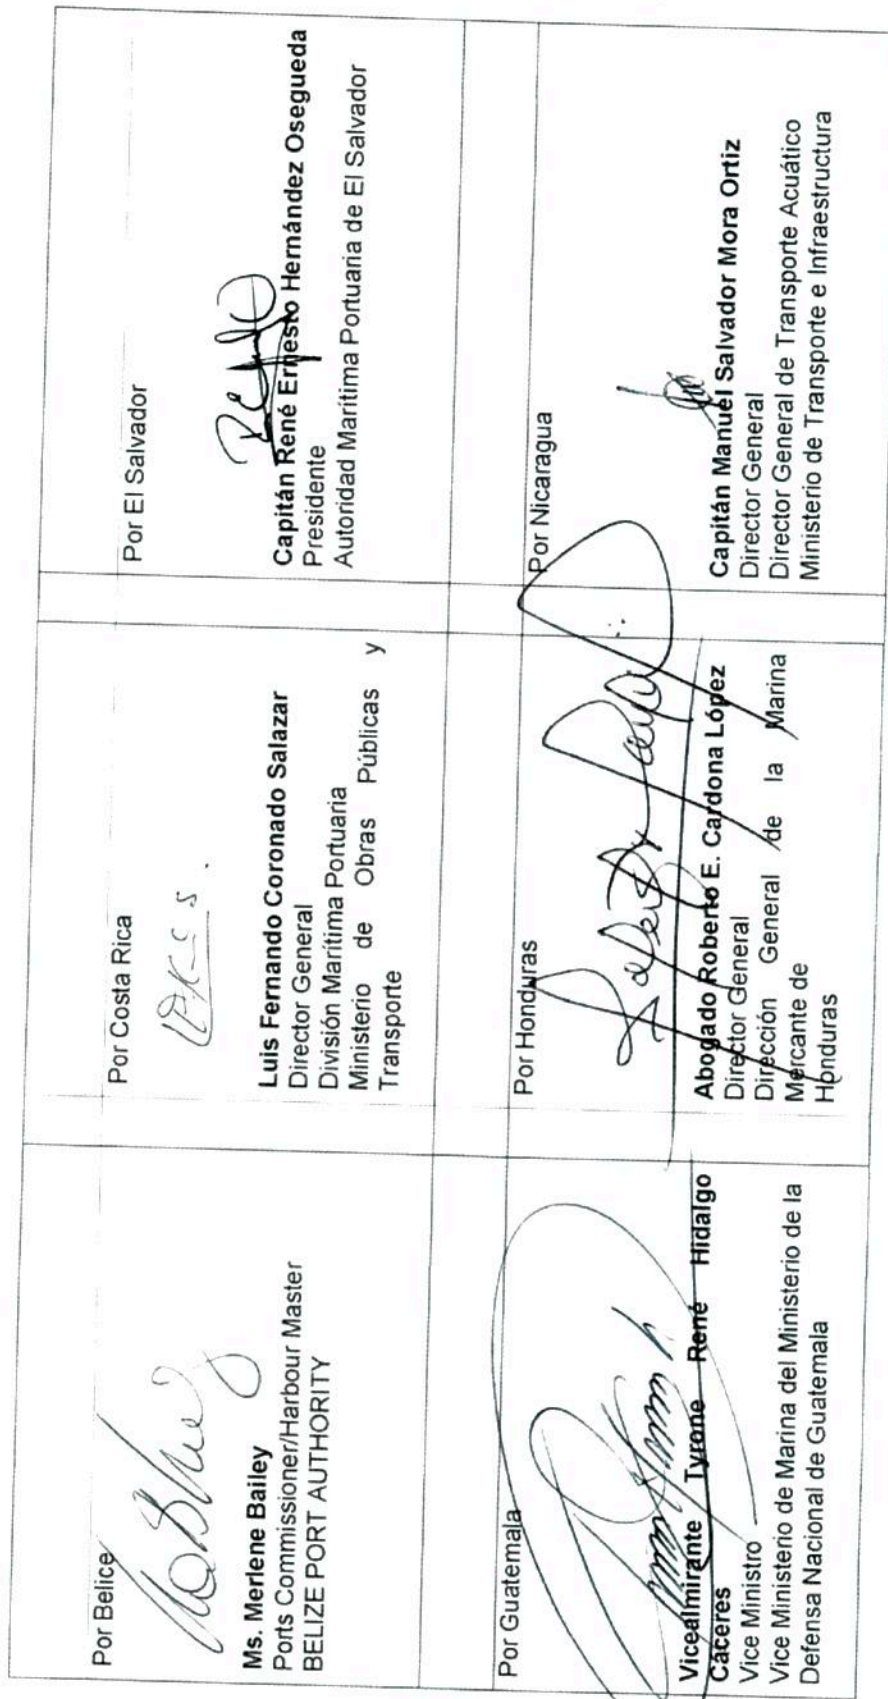 Por Belice
Ms. Merlene Bailey
Ports Commissioner/Harbour Master
BELIZE PORT AUTHORITY
Por Costa Rica
Luis Fernando Coronado Salazar
Director General
División Marítima Portuaria
Ministerio de Obras Públicas y
Transporte
Por El Salvador
Capitán René Ernesto Hernández Osegueda
Presidente
Autoridad Marítima Portuaria de El Salvador
Por Guatemala
Vicealmirante Tyrone René Hidalgo
Cáceres
Vice Ministro
Vice Ministerio de Marina del Ministerio de la
Defensa Nacional de Guatemala
Por Honduras
Abogado Roberto E. Cardona López
Director General
Dirección General de la Marina
Mercante de
Honduras
Por Nicaragua
Capitán Manuel Salvador Mora Ortiz
Director General
Director General de Transporte Acuático
Ministerio de Transporte e Infraestructura